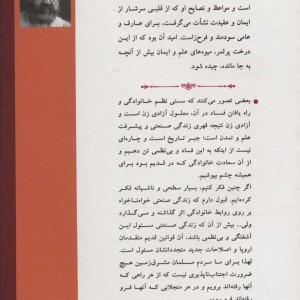 است و مواعظ و نصایح او که از قلبی سرشار از
ایمان و عقیدت نشأت می‌گرفت، برای عارف و
عامی سودمند و فرح‌زاست. امید آن بود که از این
درخت پرثمر، میوه‌های علم و ایمان بیش از آنچه
به جا مانده، چیده شود.
بعضی تصور می‌کنند که سستی نظم خانوادگی و
راه یافتن فساد در آن، معلول آزادی زن است و
آزادی زن نتیجه قهری زندگی صنعتی و پیشرفت
علم و تمدن است؛ جبر تاریخ است و چاره‌ای
نیست از اینکه به این فساد و بی‌نظمی تن دهیم و
از آن سعادت خانوادگی که در قدیم بود برای
همیشه چشم بپوشیم.
اگر چنین فکر کنیم، بسیار سطحی و ناشیانه فکر
کرده‌ایم. قبول دارم که زندگی صنعتی خواه‌ناخواه
بر روی روابط خانوادگی اثر گذاشته و می‌گذارد
ولی... بیش از آن که زندگی صنعتی مسئول این
آشفتگی و بی‌نظمی باشد، آن قوانین قدیم متقدمان
اروپا و اصلاحات جدید متجددانشان مسئول است.
لهذا برای ما مردم مسلمان مشرق‌زمین هیچ
ضرورت اجتناب‌ناپذیری نیست که از هر راهی که
آنها رفته‌اند برویم و در هر منجلابی که آنها فرو
رفته‌اند فرو رویم.